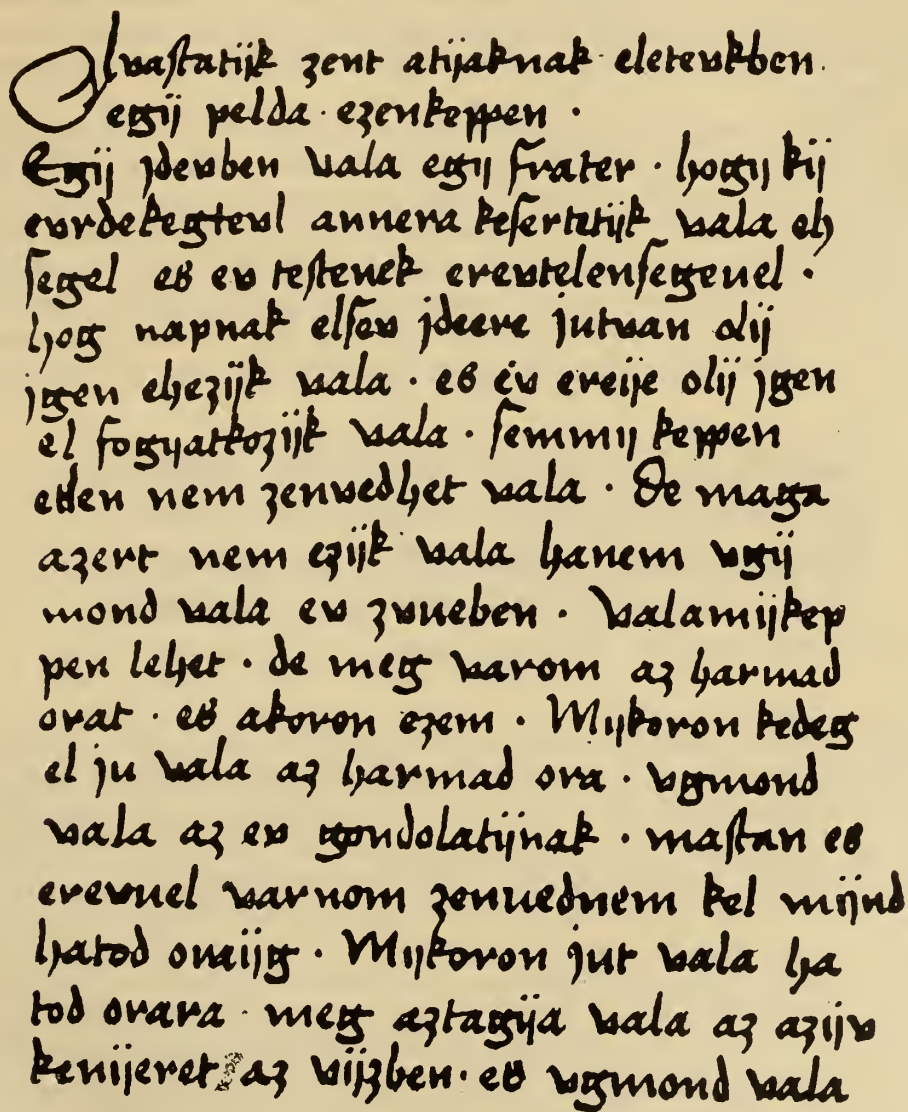 Oluaſtatijk zent atijaknak · eletevkben ·
egij pelda · ezenkeppen ·
Egij jdevben vala egij frater · hogij kij
evrdekegtevl annera keſertetijk vala eh
ſegel es ev teſtenek erevtelenſegeuel ·
hog napnak elſev jdeere jutvan olij
jgen ehezijk vala · es ev ereije olij jgen
el fogijatkozijk vala · ſemmij keppen
etlen nem zenvedhet vala · De maga
azert nem ezijk vala hanem vgij
mond vala ev zvueben · valamijkep
pen lehet · de meg varom az harmad
orat · es akoron ezem · Mijkoron kedeg
el ju vala az harmad ora · vgmond
vala az ev gondolatijnak · maſtan es
erevuel varnom zenuednem kel mijnd
hatod oraijg · Mijkoron jut vala ha
tod orara · meg aztagija vala az azijv
kenijeret az vijzben · es vgmond vala